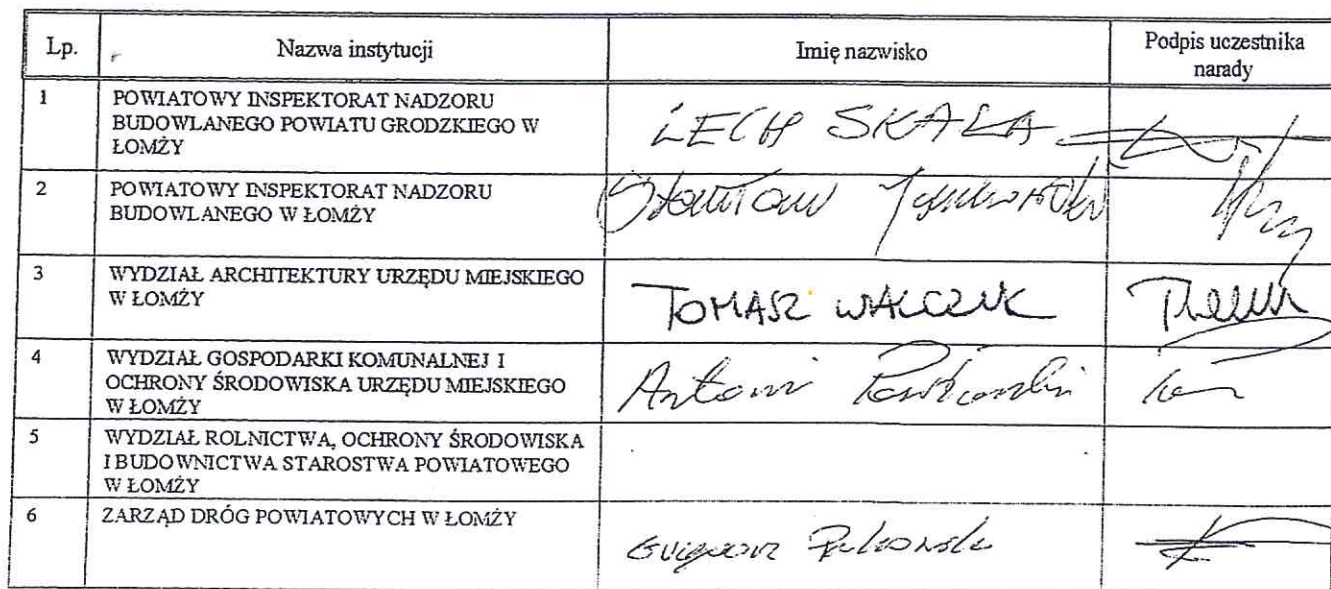 Lp. Nazwa instytucji Imię nazwisko Podpis uczestnika
narady
1 POWIATOWY INSPEKTORAT NADZORU
BUDOWLANEGO POWIATU GRODZKIEGO W
ŁOMŻY
LECH SKAŁA
2 POWIATOWY INSPEKTORAT NADZORU
BUDOWLANEGO W ŁOMŻY
3 WYDZIAŁ ARCHITEKTURY URZĘDU MIEJSKIEGO
W ŁOMŻY
TOMASZ WALCZUK
4 WYDZIAŁ GOSPODARKI KOMUNALNEJ I
OCHRONY ŚRODOWISKA URZĘDU MIEJSKIEGO
W ŁOMŻY
Antoni
5 WYDZIAŁ ROLNICTWA, OCHRONY ŚRODOWISKA
I BUDOWNICTWA STAROSTWA POWIATOWEGO
W ŁOMŻY
6 ZARZĄD DRÓG POWIATOWYCH W ŁOMŻY